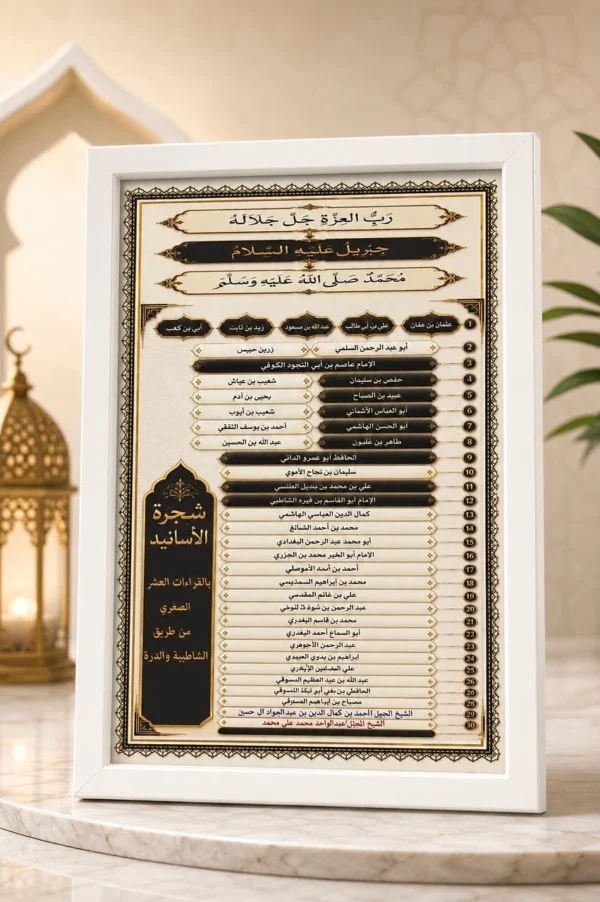 رَبُّ العِزَّةِ جَلَّ جَلَالَهُ
جِبْرِيلُ عَلَيْهِ السَّلَامُ
مُحَمَّدٌ صَلَّى اللهُ عَلَيْهِ وَسَلَّمَ
عثمان بن عفان علي بن أبي طالب عبد الله بن مسعود زيد بن ثابت أبي بن كعب 1
أبو عبد الرحمن السلمي زر بن حبيس 2
الإمام عاصم بن أبي النجود الكوفي 3
حفص بن سليمان شعيب بن عياش 4
عبيد بن الصباح يحيى بن آدم 5
أبو العباس الأشناني شعيب بن أيوب 6
أبو الحسن الهاشمي أحمد بن يوسف الثقفي 7
طاهر بن غلبون عبد الله بن الحسين 8
الحافظ أبو عمرو الداني 9
سليمان بن نجاح الأموي 10
علي بن محمد بن هذيل 11
الإمام أبو القاسم بن فيره الشاطبي 12
كمال الدين العباسي الهاشمي 13
محمد بن أحمد الصائغ 14
أبو محمد عبد الرحمن البغدادي 15
الإمام أبو الخير محمد بن الجزري 16
أحمد بن أسد الأموصلي 17
محمد بن إبراهيم السمديسي 18
علي بن غانم المقدسي 19
عبد الرحمن بن 20
محمد بن قاسم البغدري 21
أبو السماع أحمد البغدري 22
عبد الرحمن الأجوهري 23
إبراهيم بن بدوي العبيدي 24
علي 25
عبد الله بن عبد العظيم الدسوقي 26
26
مصباح بن إبراهيم 28
الشيخ الجليل أحمد بن كمال الدين بن عبد الجواد ال حسين 29
الشيخ الجليل/عبدالواحد محمد علي محمد 30
شجرة
الأسانيد
بالقراءات العشر
الصغري
من طريق
الشاطبية والدرة